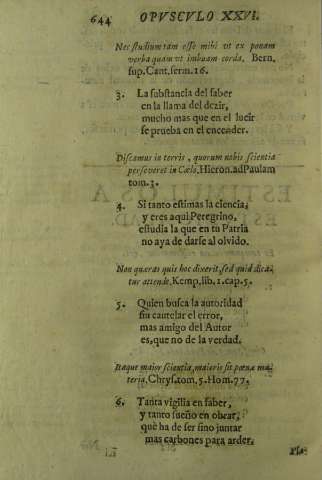 644 OPVSCVLO XXVI.
Nec studium tam esse mihi vt ex ponam
verba quam vt imbuam corda, Bern.
sup. Cant. serm. 16.
3. La substancia del saber
en la llama del dezir,
mucho mas que en el lucir
se prueba en el encender.
Discamus in terris, quorum nobis scientia
perseveret in Cœlo, Hieron. ad Paulam
tom. 3.
4. Si tanto estimas la ciencia,
y eres aqui Peregrino,
estudia la que en tu Patria
no aya de darse al olvido.
Non quæras quis hoc dixerit, sed quid dica-
tur attende, Kemp, lib. 1. cap. 5.
5. Quien busca la autoridad
sin cautelar el error,
mas amigo del Autor
es, que no de la verdad.
Itaque maior scientia, maioris fit pœnæ ma-
teria, Chrys. tom, 5. Hom. 77.
6. Tanta vigilia en saber,
y tanto sueño en obrar,
què ha de ser sino juntar
mas carbones para arder.